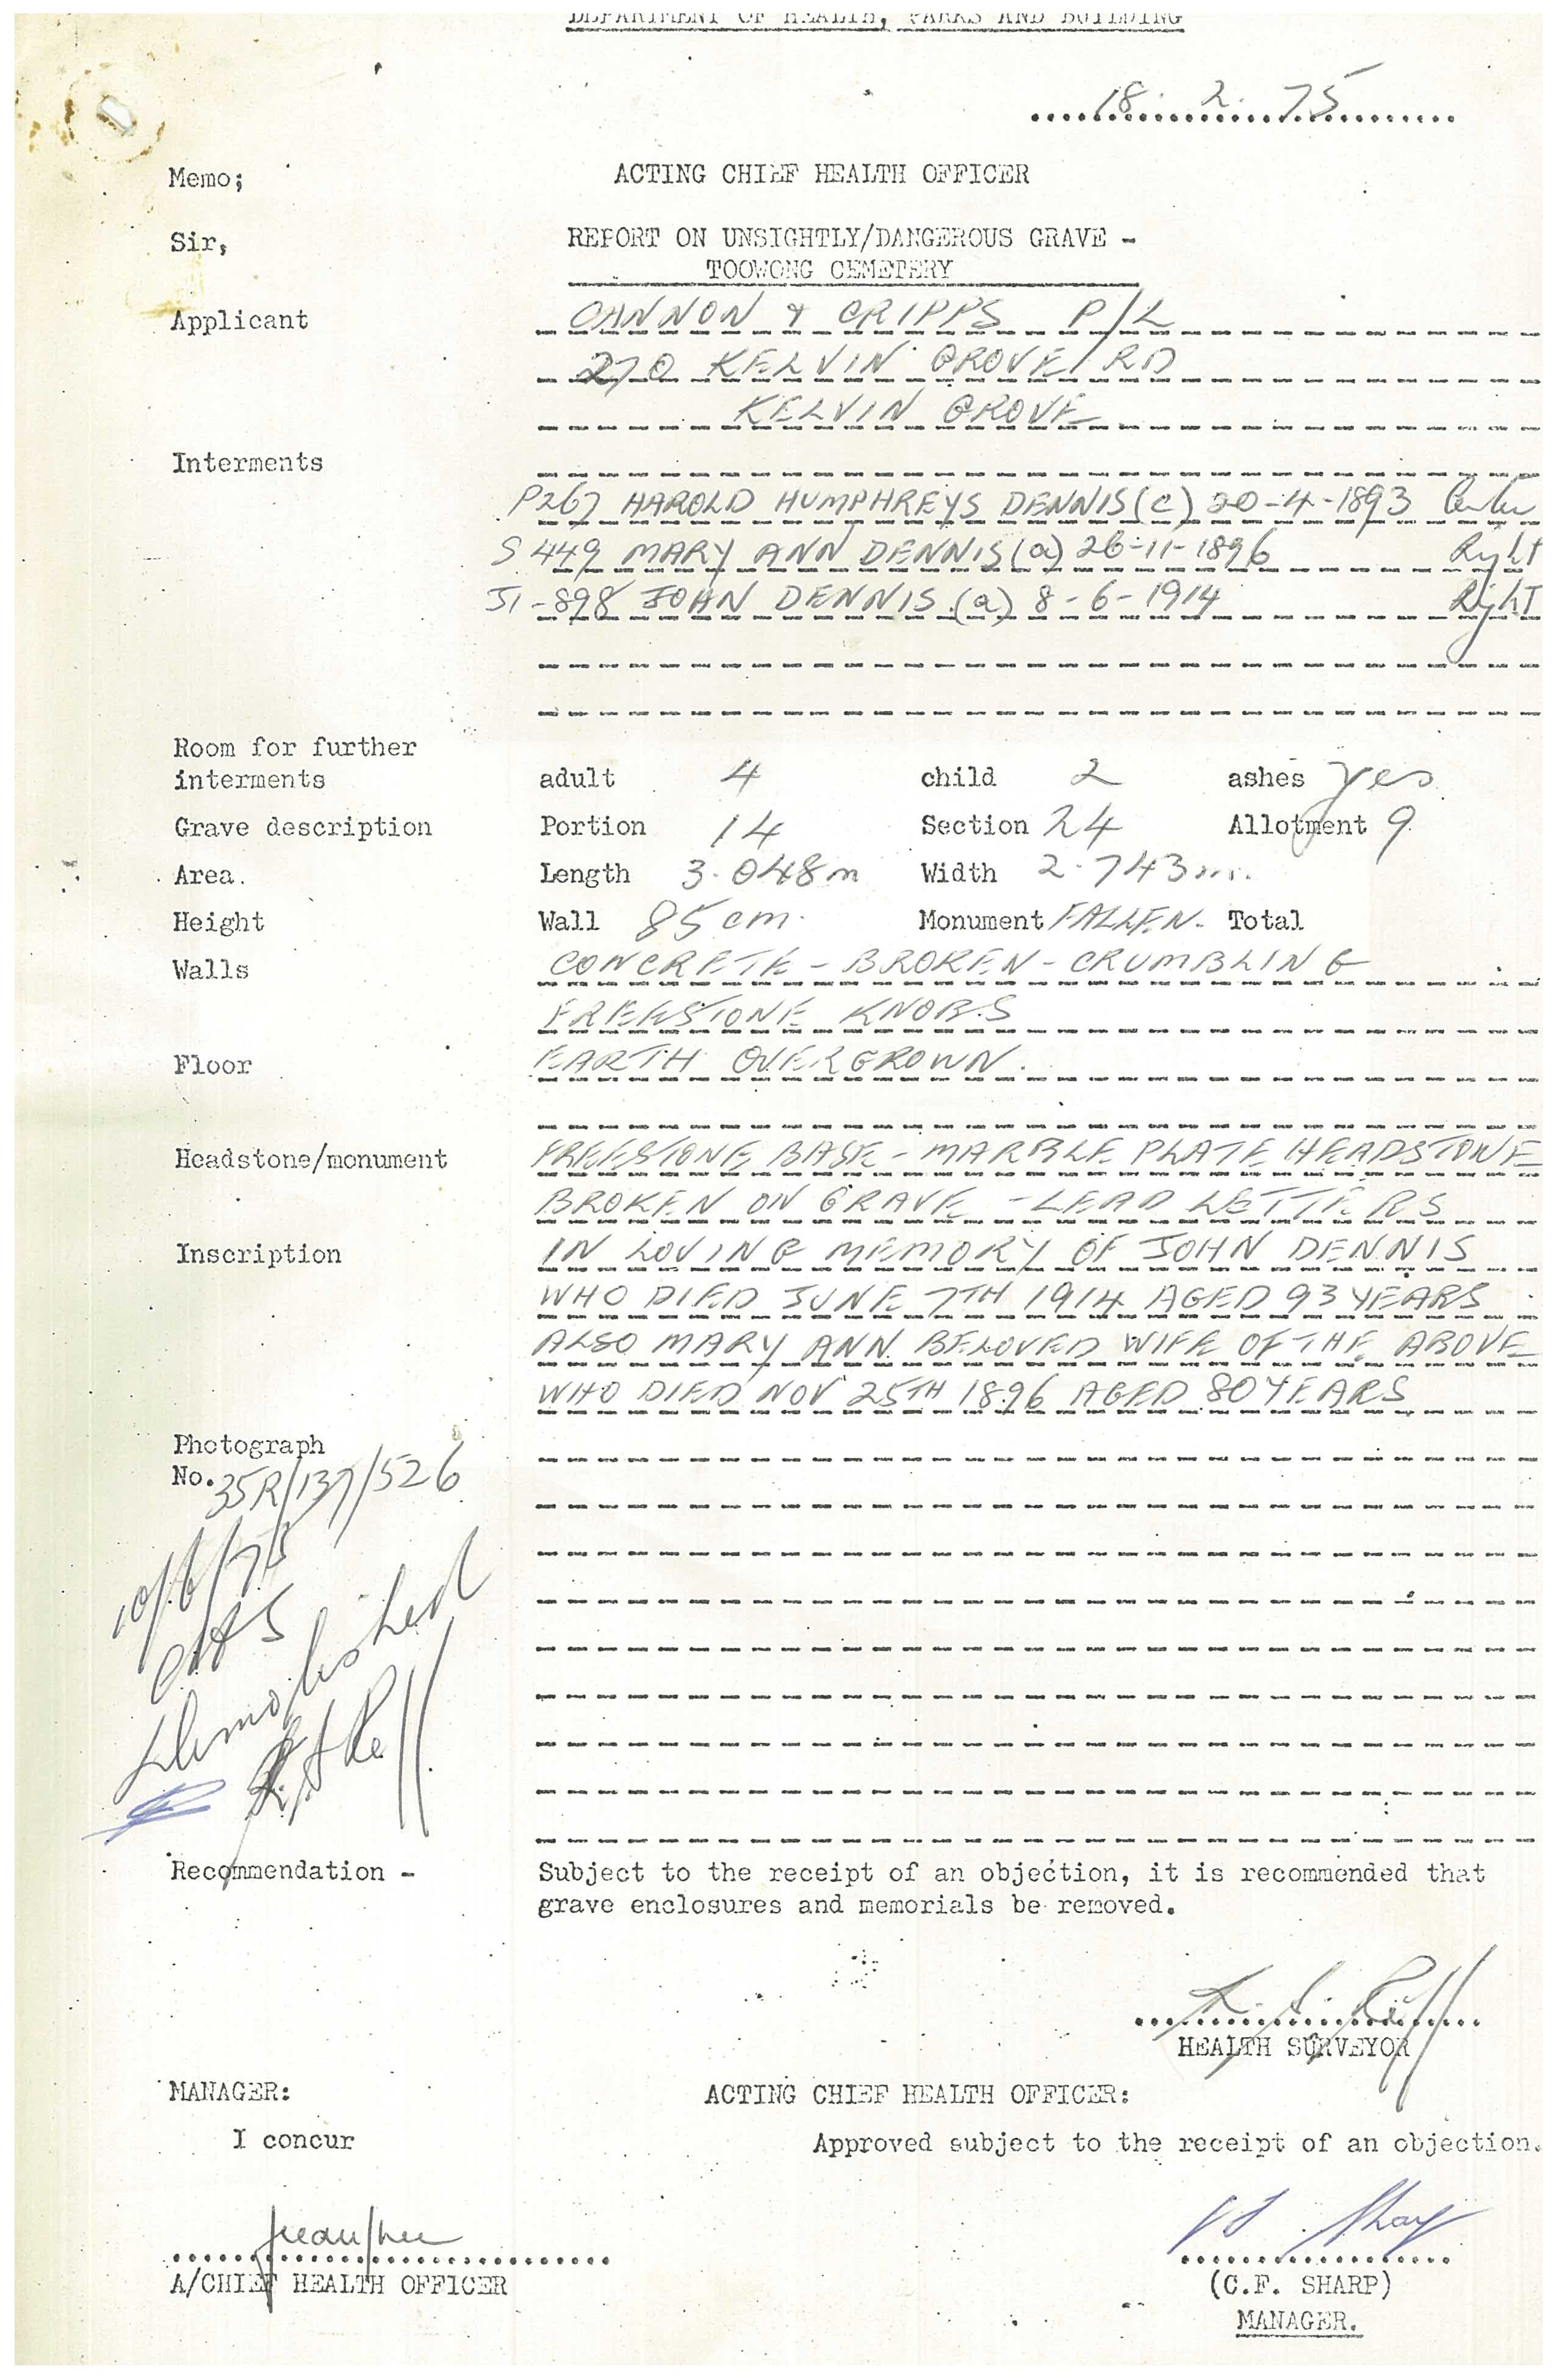 DEPARTMENT OF HEALTH, PARKS AND BUILDING
18. 2. 75
Memo; ACTING CHIEF HEALTH OFFICER
Sir, REPORT ON UNSIGHTLY/DANGEROUS GRAVE -
TOOWONG CEMETERY
Applicant CANNON & CRIPPS P/L
270 KELVIN GROVE RD
KELVIN GROVE
Interments
P267 HAROLD HUMPHREYS DENNIS (c) 20-4-1893 Center
S 449 MARY ANN DENNIS (a) 26-11-1896 Right
J1-898 JOHN DENNIS (a) 8-6-1914 Right
Room for further
interments adult 4 child 2 ashes yes
Grave description Portion 14 Section 24 Allotment 9
Area. Length 3.048m Width 2.743m.
Height Wall 85 cm. Monument FALLEN. Total
Walls CONCRETE - BROKEN - CRUMBLING
FREESTONE KNOBS
Floor EARTH OVERGROWN.
Headstone/monument FREESTONE BASE - MARBLE PLATE HEADSTONE
BROKEN ON GRAVE - LEAD LETTERS
Inscription IN LOVING MEMORY OF JOHN DENNIS
WHO DIED JUNE 7TH 1914 AGED 93 YEARS
ALSO MARY ANN BELOVED WIFE OF THE ABOVE
WHO DIED NOV 25TH 1896 AGED 80 YEARS
Photograph
No. 35R/137/526
10/6/75
Demolished
Recommendation - Subject to the receipt of an objection, it is recommended that
grave enclosures and memorials be removed.
HEALTH SURVEYOR
MANAGER: ACTING CHIEF HEALTH OFFICER:
I concur Approved subject to the receipt of an objection.
A/CHIEF HEALTH OFFICER (C.F. SHARP)
MANAGER.